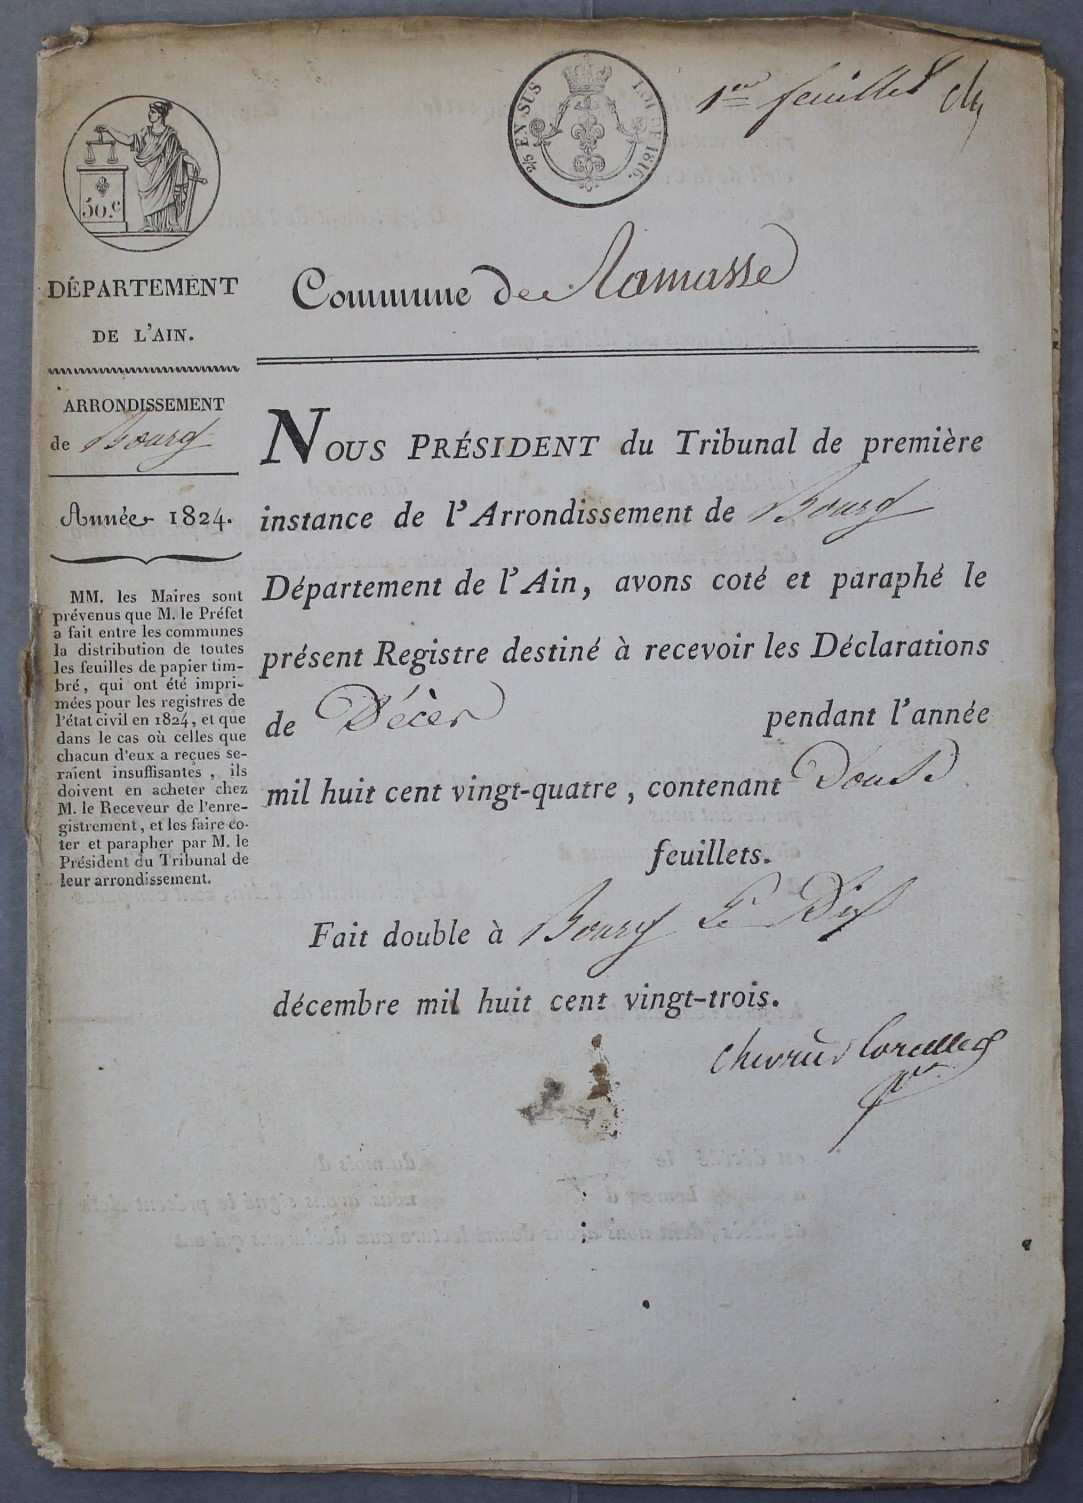 1er feuillet Ch
2/5 EN SUS
LOI DE 1816.
50.c
DÉPARTEMENT
DE L'AIN.
ARRONDISSEMENT
de Bourg
Année 1824.
MM. les Maires sont
prévenus que M. le Préfet
a fait entre les communes
la distribution de toutes
les feuilles de papier tim-
bré, qui ont été impri-
mées pour les registres de
l'état civil en 1824, et que
dans le cas où celles que
chacun d'eux a reçues se-
raient insuffisantes, ils
doivent en acheter chez
M. le Receveur de l'enre-
gistrement, et les faire co-
ter et parapher par M. le
Président du Tribunal de
leur arrondissement.
Commune de Ramasse
NOUS PRÉSIDENT du Tribunal de première
instance de l'Arrondissement de Bourg
Département de l'Ain, avons coté et paraphé le
présent Registre destiné à recevoir les Déclarations
de Décès pendant l'année
mil huit cent vingt-quatre, contenant Douze
feuillets.
Fait double à Bourg Le Dix
décembre mil huit cent vingt-trois.